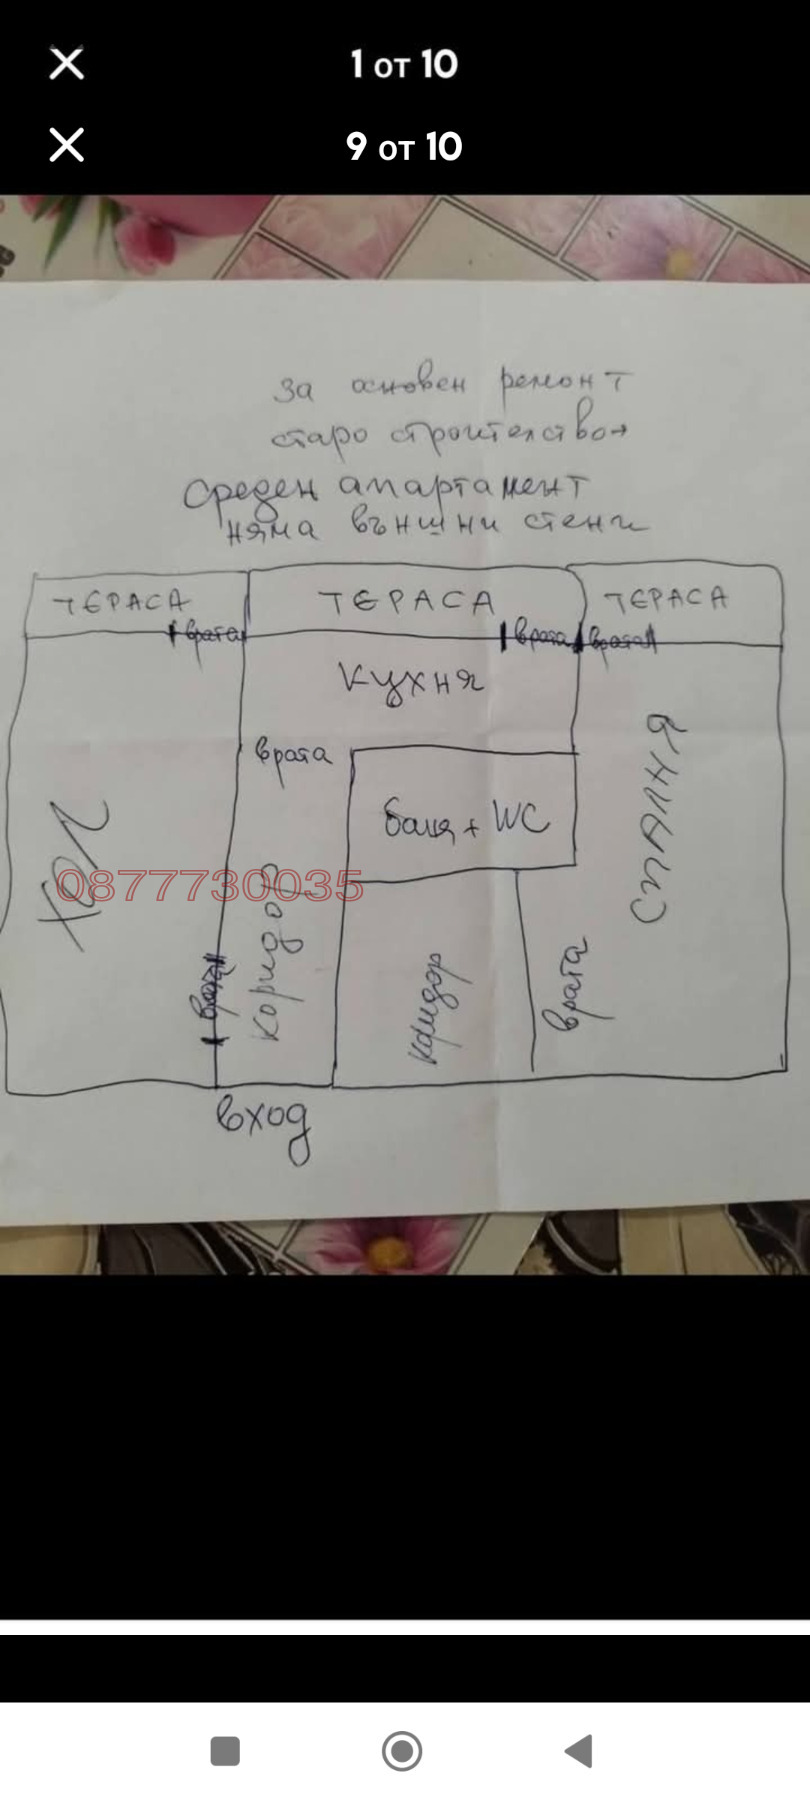 1 от 10
9 от 10
за основен ремонт
старо строителство→
Среден апартамент
няма външни стени
ТЕРАСА ТЕРАСА ТЕРАСА
врата врата врата
кухня
врата
баня + WC
ХОЛ
спалня
0877730035
коридор
врата
коридор
врата
вход